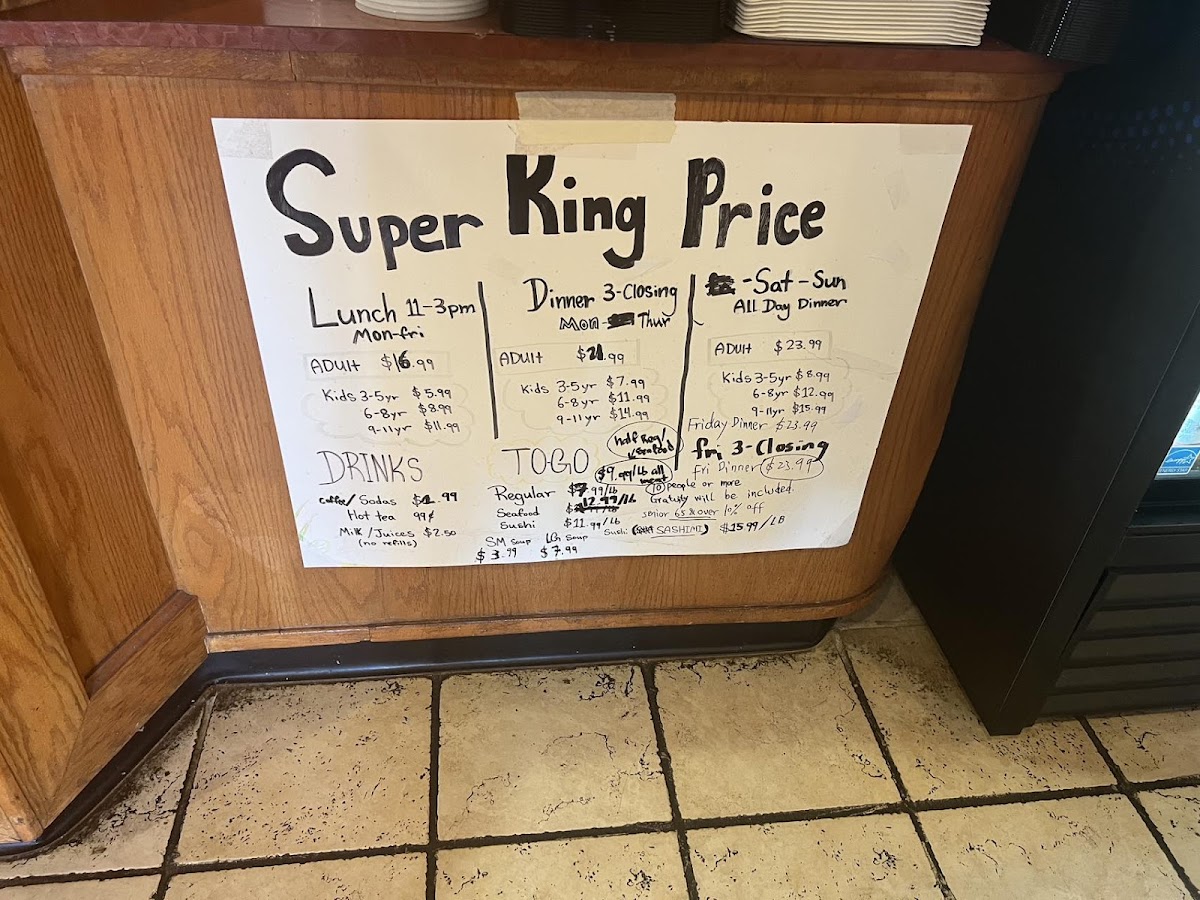 Super King Price
Lunch 11-3pm
Mon-fri
ADUlt $16.99
Kids 3-5yr $5.99
6-8yr $8.99
9-11yr $11.99
Dinner 3-Closing
Mon- Thur
ADUlt $21.99
Kids 3-5yr $7.99
6-8yr $11.99
9-11yr $14.99
-Sat-Sun
All Day Dinner
ADUlt $23.99
Kids 3-5yr $8.99
6-8yr $12.99
9-11yr $15.99
Friday Dinner $23.99
fri 3-Closing
fri Dinner $23.99
10 people or more
Gratuity will be included.
senior 65 & over 10% off
DRINKS
Coffee/Sodas $1.99
Hot tea 99¢
Milk/Juices $2.50
(no refills)
TOGO
half Reg/
Seafood
$9.99/lb all
Regular $7.99/lb
Seafood 12.99/lb
Sushi $11.99/Lb
Sushi (SASHIMI) $15.99/LB
SM Soup LG Soup
$3.99 $7.99